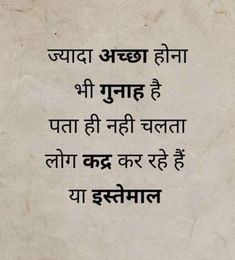 ज्यादा अच्छा होना
भी गुनाह है
पता ही नही चलता
लोग कद्र कर रहे हैं
या इस्तेमाल